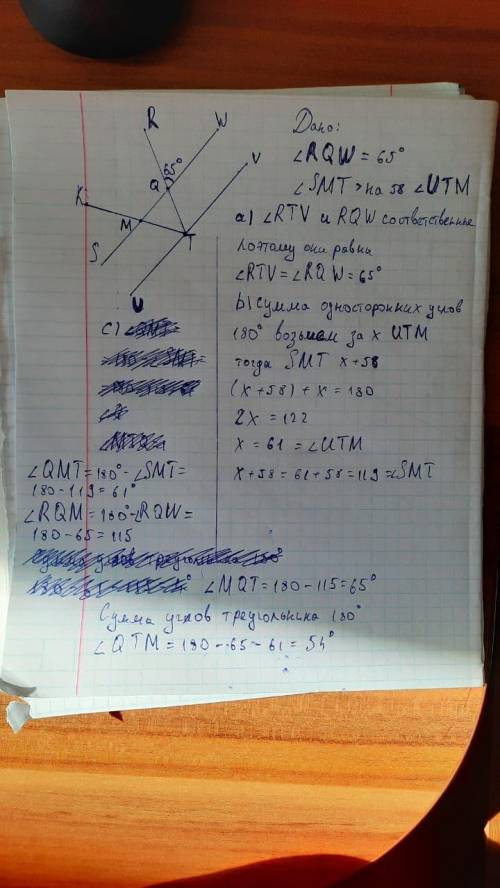 R
W
V
65°
Q
K
M
T
S
U
Дано:
∠RQW = 65°
∠SMT > на 58 ∠UTM
a) ∠RTV и RQW соответственные
поэтому они равны
∠RTV = ∠RQW = 65°
b) Сумма односторонних углов
180° возьмем за x UTM
тогда SMT x+58
(x+58)+x = 180
2x = 122
x = 61 = ∠UTM
x+58 = 61+58 = 119 = ∠SMT
c)
∠QMT = 180° - ∠SMT =
180 - 119 = 61°
∠RQM = 180° - ∠RQW =
180 - 65 = 115
∠MQT = 180 - 115 = 65°
Сумма углов треугольника 180°
∠QTM = 180 - 65 - 61 = 54°